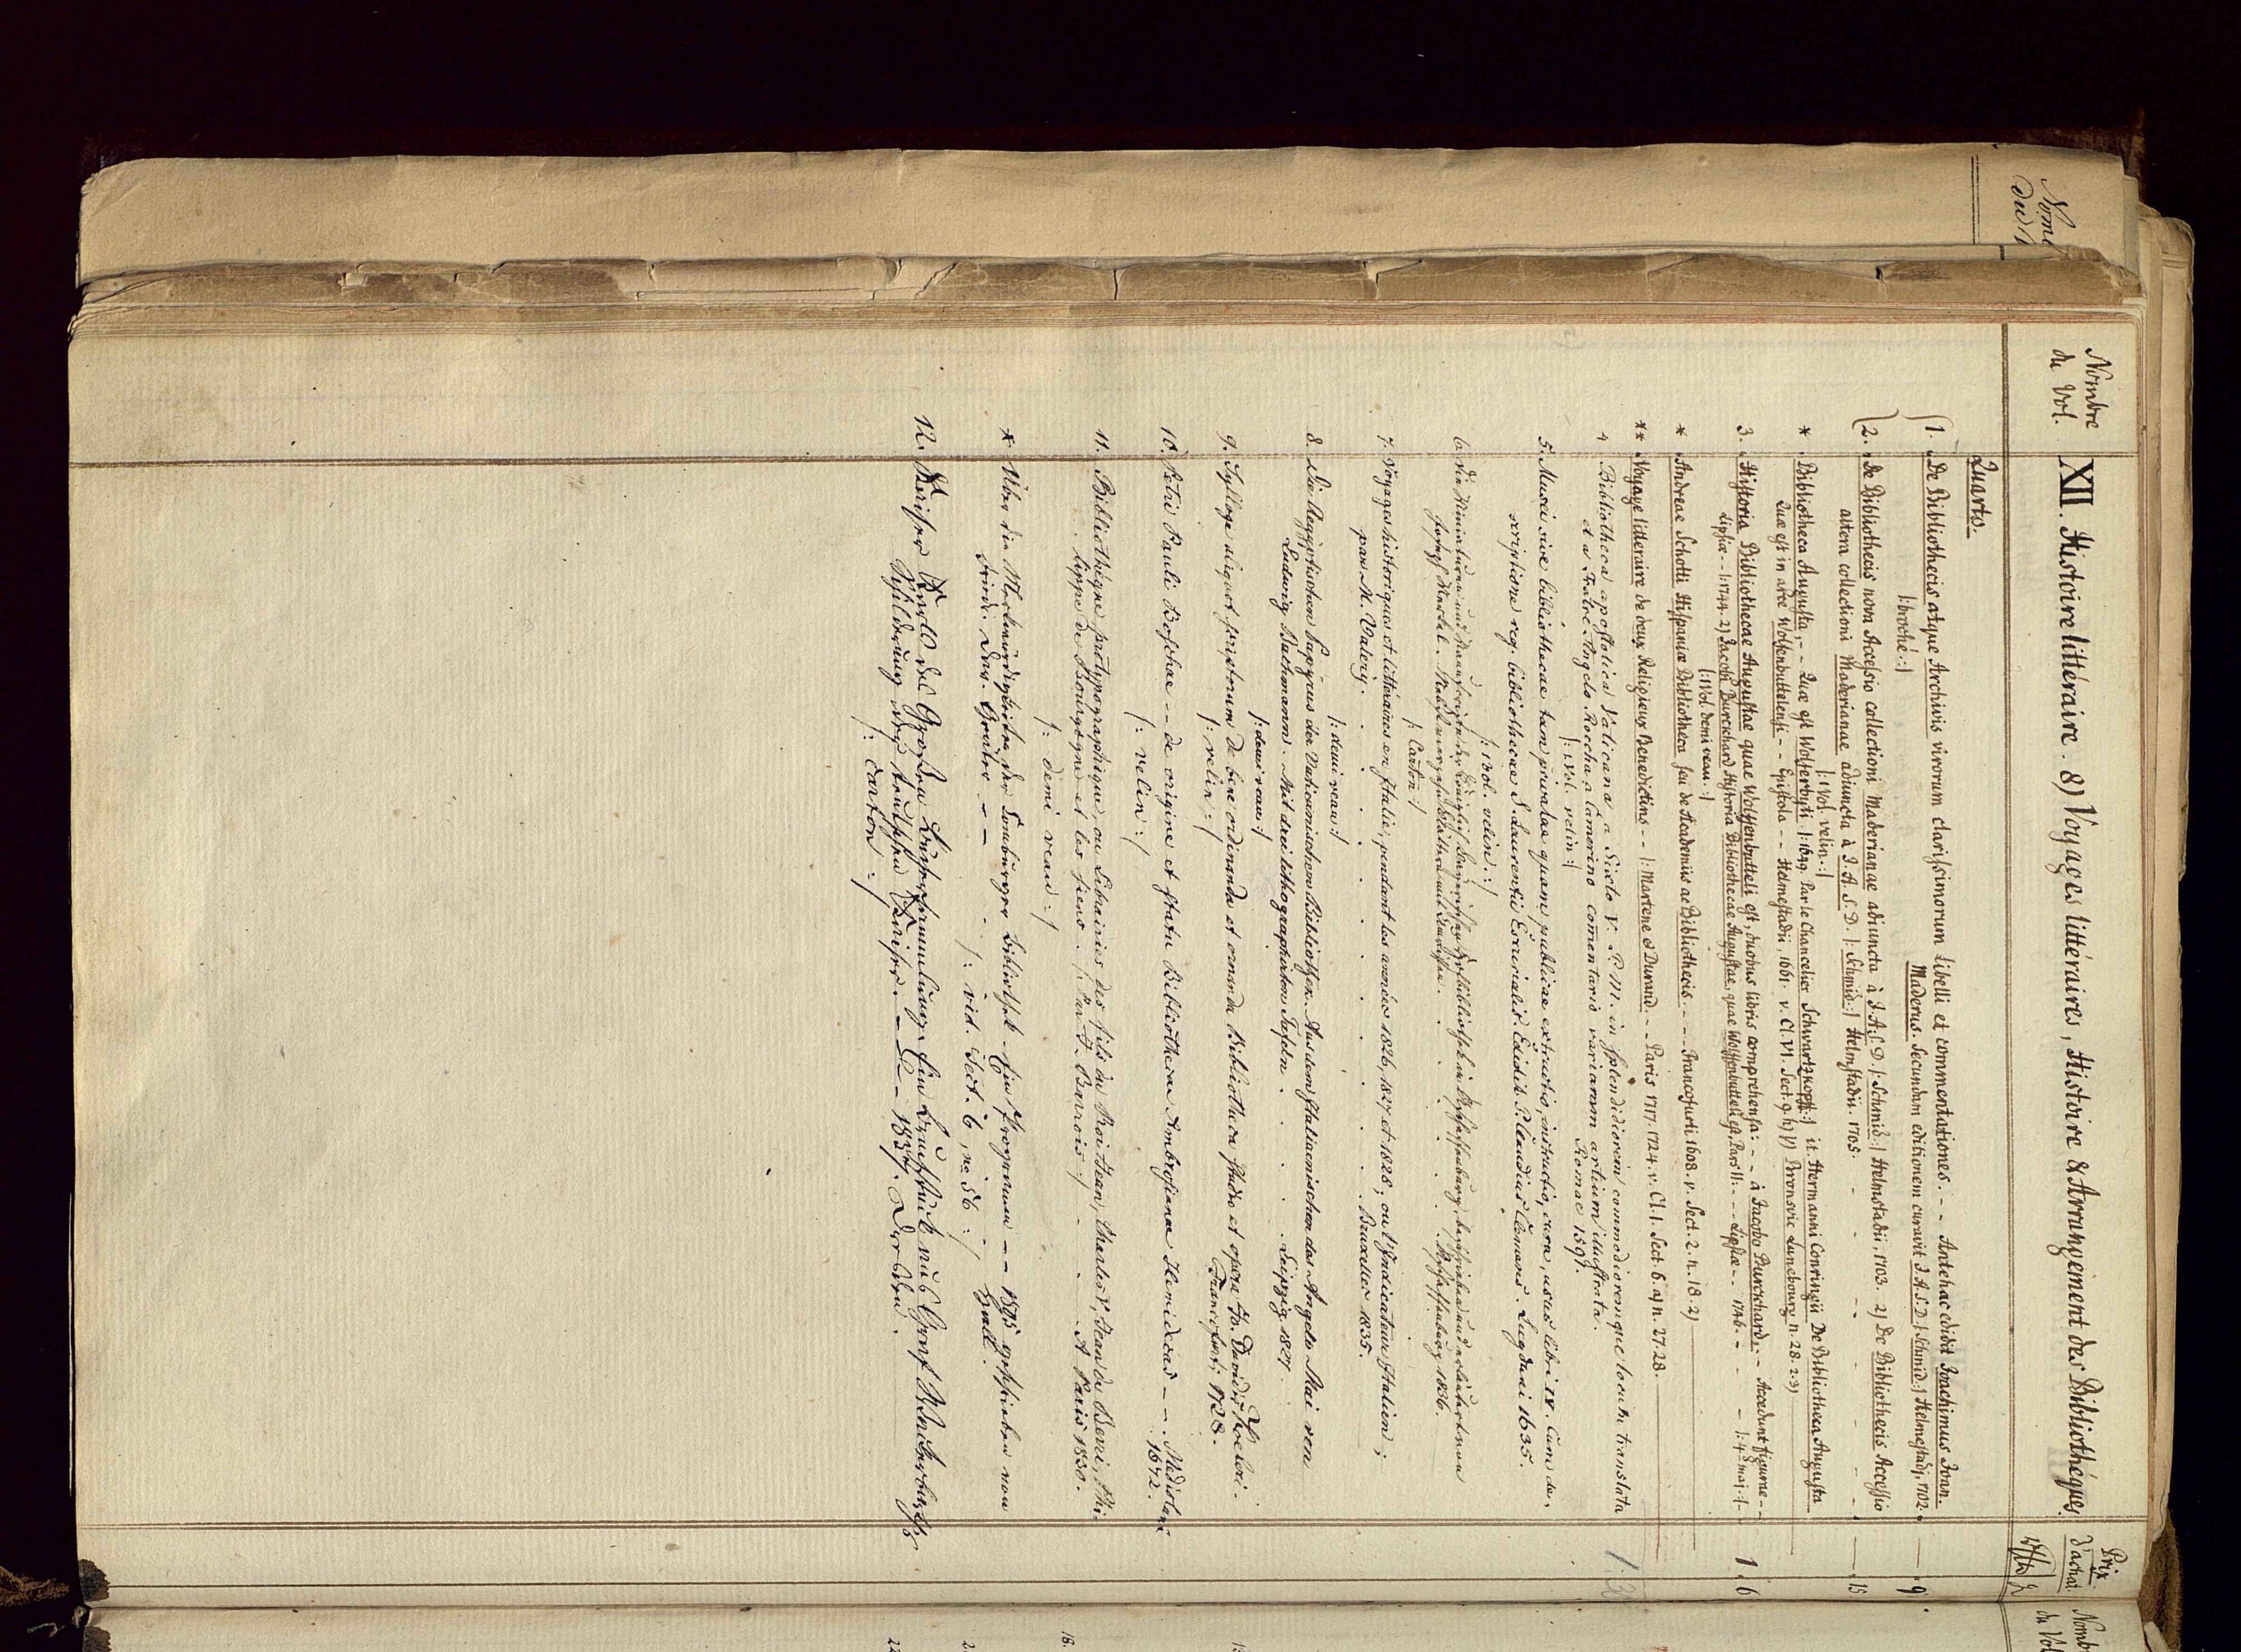 Nombre du Vol.
XII. Histoire littéraire. 8) Voyages littéraires, Histoire & Arrangement des Bibliothéques.
Prix d'achat.
Quarto.
1. De Bibliothecis atque Archivis virorum clarissimorum Libelli et commentationes. - - Antehac edidit Joachimus Joan.
Maderus. Secundam editionem curavit J. A. S. D. /: Schmid :/ Helmestadj, 1702. — 9
/: broché :/
2. de Bibliothecis nova Accessio collectioni Maderianae adiuncta à J. A. S. D. /: Schmid :/ Helmstadii, 1703. 2) De Bibliothecis Accessio
altera collectioni Maderianae adiuncta à J. A. S. D. /: Schmid :/ Helmstadii. 1705. — 15
/: 1 Vol. velin :/
* Bibliotheca Augusta, - - Quæ est Wolferbyti. /: 1649. Par le Chancelier Schwartzkopff :/ it. Hermanni Conringii De Bibliotheca Augusta
Quæ est in arce Wolfenbuttensi - - Epistola - - Helmestadii, 1661. v. Cl. VI. Sect. 9. b) γ) Bronsvic Lunebourg n. 28. 2.3)
3. Historia Bibliothecae Augustae quae Wolffenbutteli est, duobus libris comprehensa: - - à Jacobo Burckhard: - - Accedunt figurae - -
Lipsiæ - - /: 1744. 2) Jacobi Burckhard Historia Bibliothecae Augustae, quae Wolffenbutteli est, Pars II: - - Lipsiæ - - 1746. - - /: 4° maj. :/ — 1. 6
/: 1 Vol. demi veau. :/
* Andreae Schotti Hispaniæ Bibliotheca seu de Academiis ac Bibliothecis. - - - Francofurti 1608. v. Sect. 2. n. 18. 2)
** Voyage litteraire de deux Religieux Benedictins - - /: Martene & Durand. - - Paris 1717. 1724. v. Cl. I. Sect. 6. a) n. 27. 28.
4 Bibliotheca apostolica Vaticana a Sixto V. P. M. in splendidiorem commodioremque locum translata
et a Fratre Angelo Roccha a Camerino commentario variarum artium illustrata.
Romae 1591.
/: 1 Vol. velin :/
5. Musei sive bibliothecae tam privatae quam publicae extructio, instructio, cura, usus libri IV. Cum de-
scriptione reg. bibliothecae S. Laurentii Escurialis. Edidit P. Claudius Clemens. Lugduni 1635.
/: 1 Vol. velin :/
6. Die Miniaturen und Manuscripte der Königlich bayerischen Hofbibliothek in Aschaffenburg, beschrieben und erläutert von
Joseph Merkel. Aschaffenburg 1836.
/: Carton :/
7. Voyages historiques et littéraires en Italie, pendant les années 1826, 1827 et 1828; ou l'Indicateur Italien;
par M. Valery. Bruxelles 1835.
/: demi veau :/
8. Die Aegyptischen Papyrus der Vaticanischen Bibliothek. Aus dem Italienischen des Angelo Mai von
Ludwig Bachmann. Mit drei lithographirten Tafeln. Leipzig 1827.
/: demi veau :/
9. Sylloge aliquot scriptorum de bene ordinanda et ornanda Bibliotheca studio et opera Jo. Davidis Koeleri.
Francofurti 1728.
/: velin :/
10. Petri Pauli Boschae - - de origine et statu Bibliothecae Ambrosianae Hemidecas - - Mediolani
1672.
/: velin :/
11. Bibliothèque protypographique, ou Librairies des fils du Roi Jean, Charles V, Jean de Berri, Phi-
lippe de Bourgogne et les siens. /: Par J. Barrois :/ - - A Paris 1830.
/: demi veau :/
* Über die Merkwürdigkeiten der Comburger Bibliothek. Ein Programm - - 1805 geschrieben von
Friedr. Dav. Gräter - - Hall.
/: vid. Sect. 6, no. 56 :/
12. Pariser Karls des Großen
1837.
/: carton :/